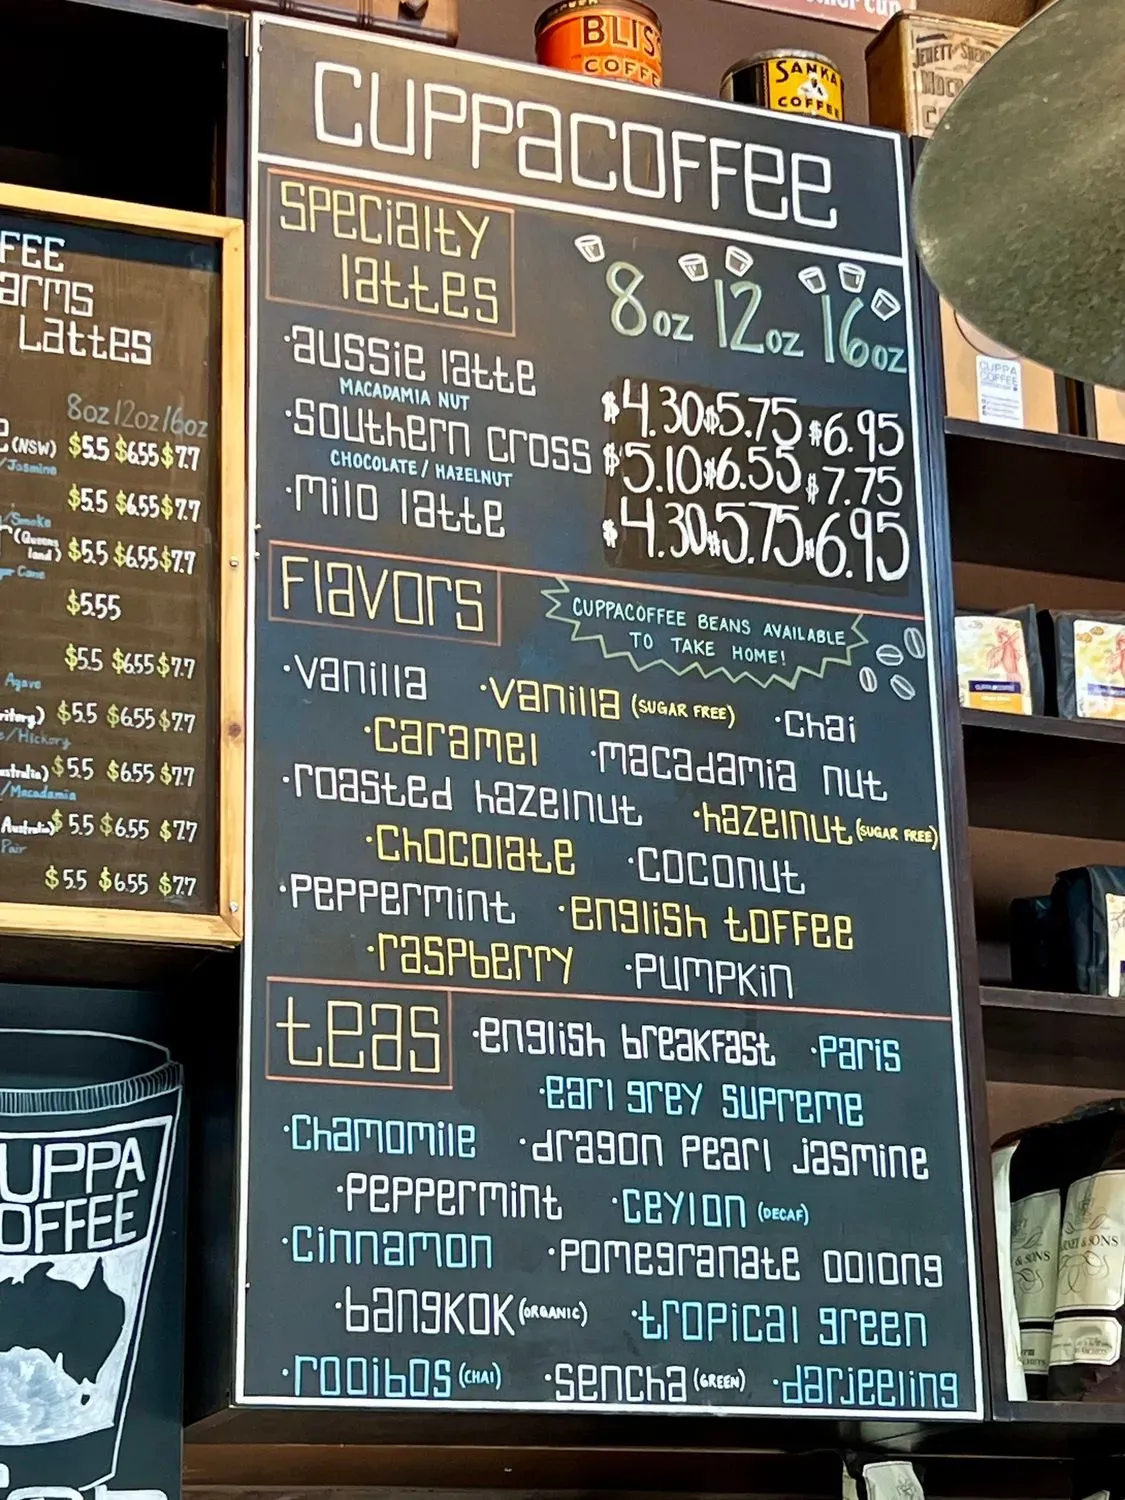 BLIS
COFFE
SANKA
COFFEE
CUPPACOFFEE
SPECIALTY
LATTES
8oz 12oz 16oz
·aussie latte $4.30 $5.75 $6.95
MACADAMIA NUT
·southern cross $5.10 $6.55 $7.75
CHOCOLATE / HAZELNUT
·milo latte $4.30 $5.75 $6.95
FLAVORS
CUPPACOFFEE BEANS AVAILABLE
TO TAKE HOME!
·vanilla ·vanilla (SUGAR FREE) ·chai
·caramel ·macadamia nut
·roasted hazelnut ·hazelnut (SUGAR FREE)
·chocolate ·coconut
·peppermint ·english toffee
·raspberry ·pumpkin
teas ·english breakfast ·paris
·earl grey supreme
·chamomile ·dragon pearl jasmine
·peppermint ·ceylon (DECAF)
·cinnamon ·pomegranate oolong
·bangkok (ORGANIC) ·tropical green
·rooibos (CHAI) ·sencha (GREEN) ·darjeeling
FEE
arms
Lattes
8oz 12oz 16oz
(NSW) $5.5 $6.55 $7.7
/Jasmine
$5.5 $6.55 $7.7
/Smoke
(Queens
land) $5.5 $6.55 $7.7
Cane
$5.55
$5.5 $6.55 $7.7
Agave
ritory) $5.5 $6.55 $7.7
/Hickory
ustralia) $5.5 $6.55 $7.7
/Macadamia
Australia) $5.5 $6.55 $7.7
Pair
$5.5 $6.55 $7.7
UPPA
OFFEE
CUPPA
COFFEE
& SONS
& SONS